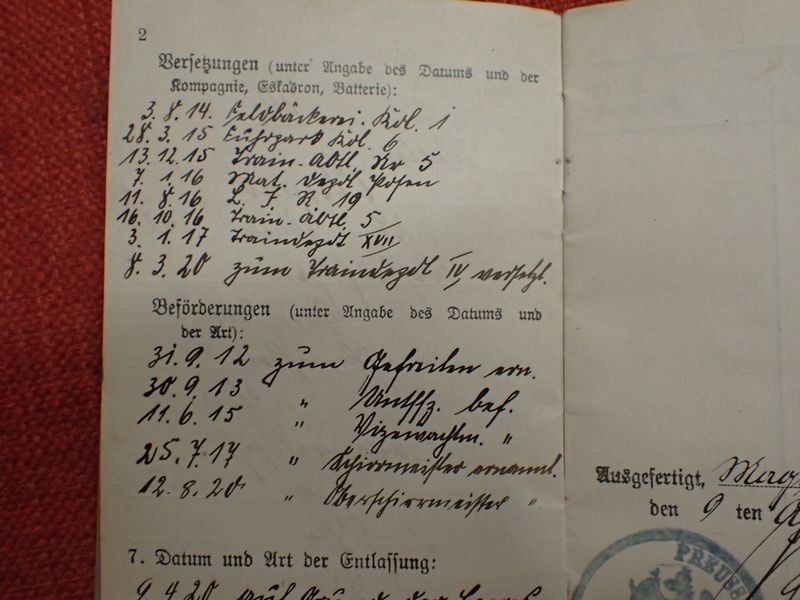 2
Versetzungen (unter Angabe des Datums und der
Kompagnie, Eskadron, Batterie):
3. 8. 14. Feldbäckerei. Kol. 1
28. 3. 15 Fuhrpark Kol. 6
13. 12. 15 Train. Abtl. Nr 5
7. 1. 16 Mat. Depot Posen
11. 8. 16 L. F. R. 19
16. 10. 16 Train. Abtl. 5
3. 1. 17 Traindepot XVII
8. 3. 20 zum Traindepot IV, versetzt.
Beförderungen (unter Angabe des Datums und
der Art):
31. 9. 12 zum Gefreiten ern.
30. 9. 13 " Untffz. bef.
11. 6. 15 " Vizewachtm. "
25. 7. 17 " Schirrmeister ernannt.
12. 8. 20 " Oberschirrmeister "
7. Datum und Art der Entlassung:
9 4 20 auf Grund der
Ausgefertigt, Mag
den 9 ten
PREUSS